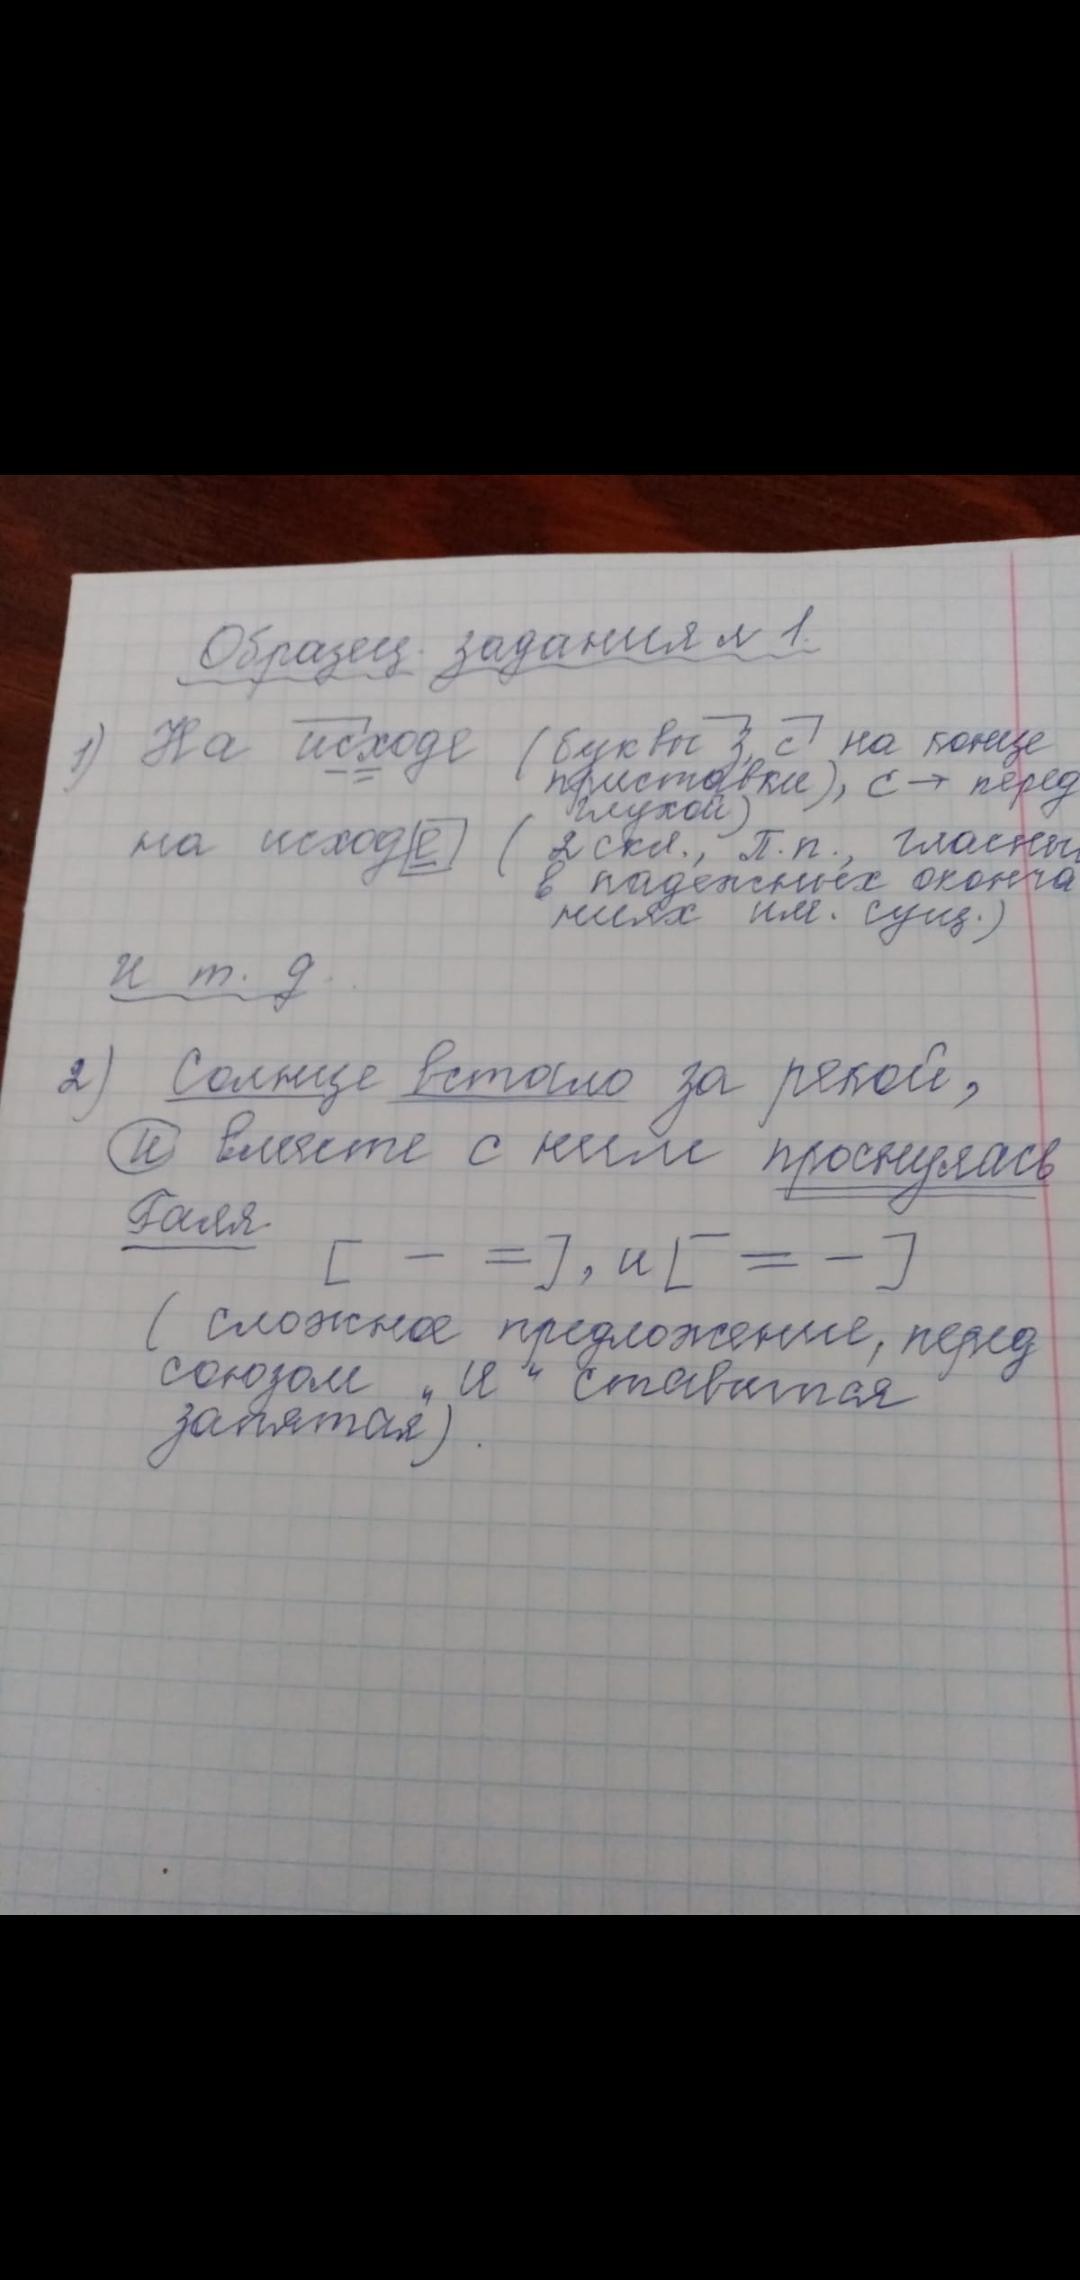 Образец задания № 1.
1) На исходе (буквы з, с на конце
приставки), с → перед
глухой)
на исходе (2 скл., П.п., гласны
в падежных оконча
ниях им. сущ.)
и т. д.
2) Солнце встало за рекой,
и вместе с ним проснулась
Галя
[ – =], и [ = – ]
(сложное предложение, перед
союзом „И“ ставится
запятая).